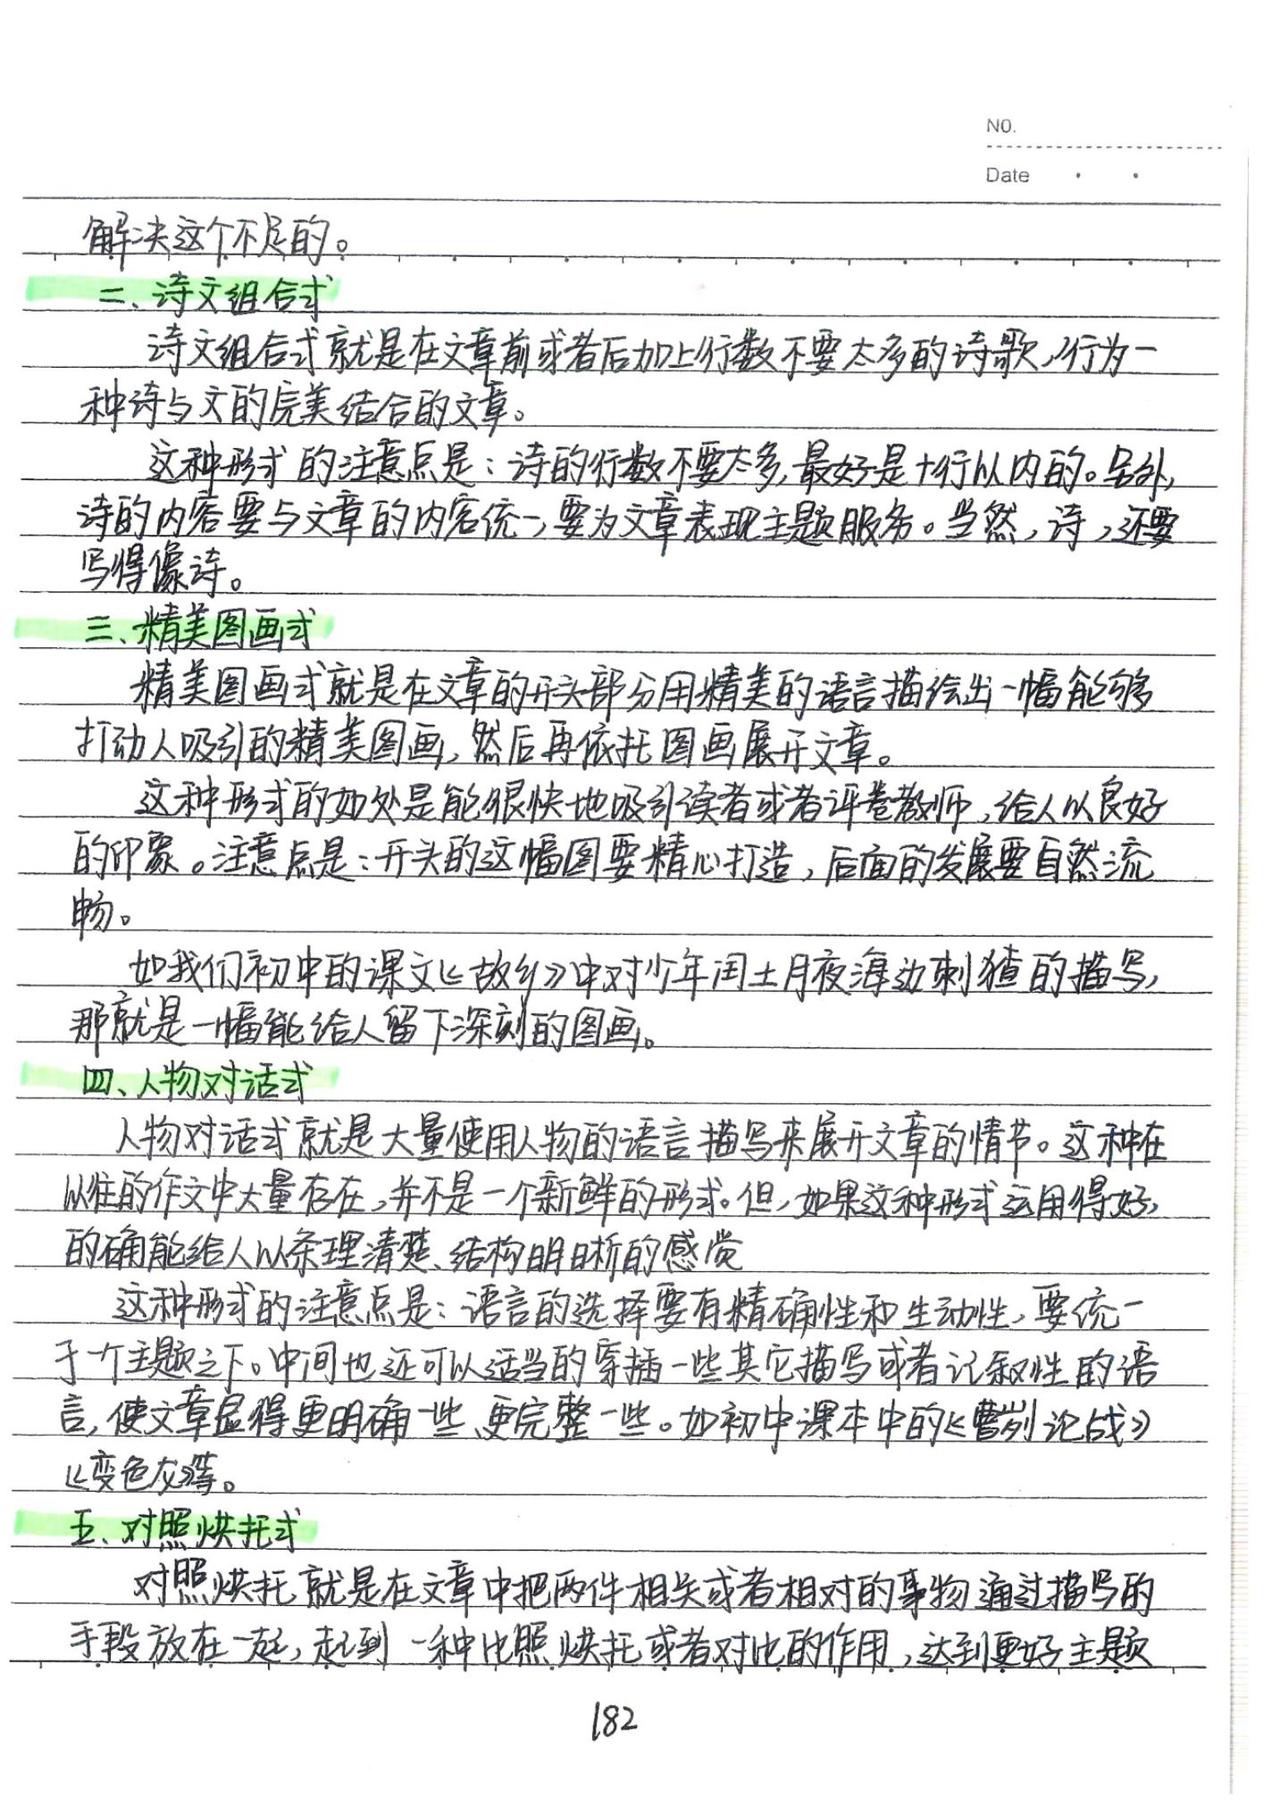 NO.
Date
解决这个不足的。
二、诗文组合式
诗文组合式就是在文章前或者后加上行数不要太多的诗歌,行为一
种诗与文的完美结合的文章。
这种形式的注意点是:诗的行数不要太多,最好是十行以内的。另外,
诗的内容要与文章的内容统一,要为文章表现主题服务。当然,诗,还要
写得像诗。
三、精美图画式
精美图画式就是在文章的开头部分用精美的语言描绘出一幅能够
打动人吸引的精美图画,然后再依托图画展开文章。
这种形式的好处是能很快地吸引读者或者评卷教师,给人以良好
的印象。注意点是:开头的这幅图要精心打造,后面的发展要自然流
畅。
如我们初中的课文《故乡》中对少年闰土月夜海边刺猹的描写,
那就是一幅能给人留下深刻的图画。
四、人物对话式
人物对话式就是大量使用人物的语言描写来展开文章的情节。这种在
以往的作文中大量存在,并不是一个新鲜的形式。但,如果这种形式运用得好,
的确能给人以条理清楚、结构明晰的感觉
这种形式的注意点是:语言的选择要有精确性和生动性,要统一
于一个主题之下。中间也还可以适当的穿插一些其它描写或者记叙性的语
言,使文章显得更明确一些、更完整一些。如初中课本中的《曹刿论战》
《变色龙》等。
五、对照烘托式
对照烘托就是在文章中把两件相关或者相对的事物通过描写的
手段放在一起,起到一种比照烘托或者对比的作用,达到更好主题
182